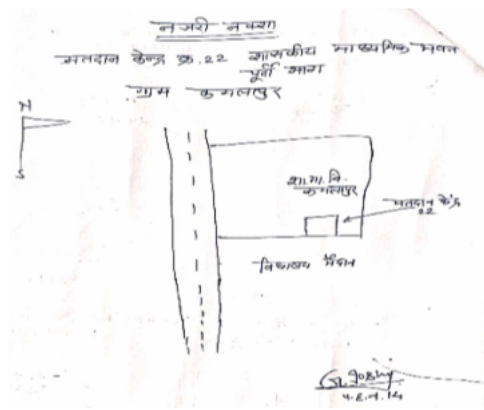 नजरी नक्शा
मतदान केन्द्र क्र. 22 शासकीय माध्यमिक भवन
पूर्वी भाग
ग्राम कमलापुर
N
S
शा.मा.वि.
कमलापुर
मतदान केंद्र
22
विद्यालय मैदान